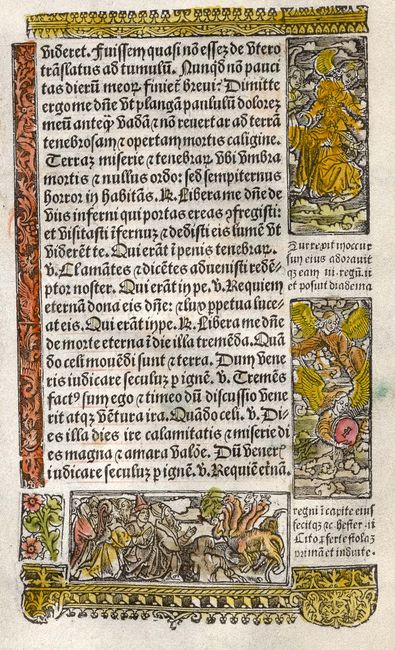 videret. Fuissem quasi nō essez de vtero
trāslatus ad tumulū. Nunqd nō pauci
tas dierū meoꝝ finiet̄ brevi: Dimitte
ergo me dn̄e vt plangā paululū dolorez
meū anteꝙ̄ vadā ⁊ nō revertar ad terrā
tenebrosam ⁊ opertam mortis caligine.
Terraꝫ miserie ⁊ tenebraꝝ vbi vmbra
mortis ⁊ nullus ordo: sed sempiternus
horror in habitās. R̷. Libera me dn̄e de
viis inferni qui portas ereas ꝯfregisti:
et visitasti īfernuꝫ ⁊ dedisti eis lumē vt
viderēt te. Qui erāt ī penis tenebraꝝ.
v. Clamātes ⁊ dicētes aduenisti redē⸗
ptor noster. Qui erāt in pe. v. Requiem
eternā dona eis dn̄e: ⁊ lux ppetua luce⸗
at eis. Qui erāt in pe. R̷. Libera me dn̄e
de morte eterna ī die illa tremēda. Quā
do celi mouēdi sunt ⁊ terra. Dum vene
ris iudicare seculuꝫ p ignē. v. Tremēs
factꝰ sum ego ⁊ timeo dū discussio vene
rit atqꝫ vētura ira. Quādo celi. v. Di⸗
es illa dies ire calamitatis ⁊ miserie di
es magna ⁊ amara valde. Dū vener̄
iudicare seculuꝫ p ignē. v. Requiē etnā.
sum eius adorauit
et posuit diadema
regni ī capite eius
fecitqꝫ ⁊c hester .ii
Cito ꝓferte stolaꝫ
primā et induite.